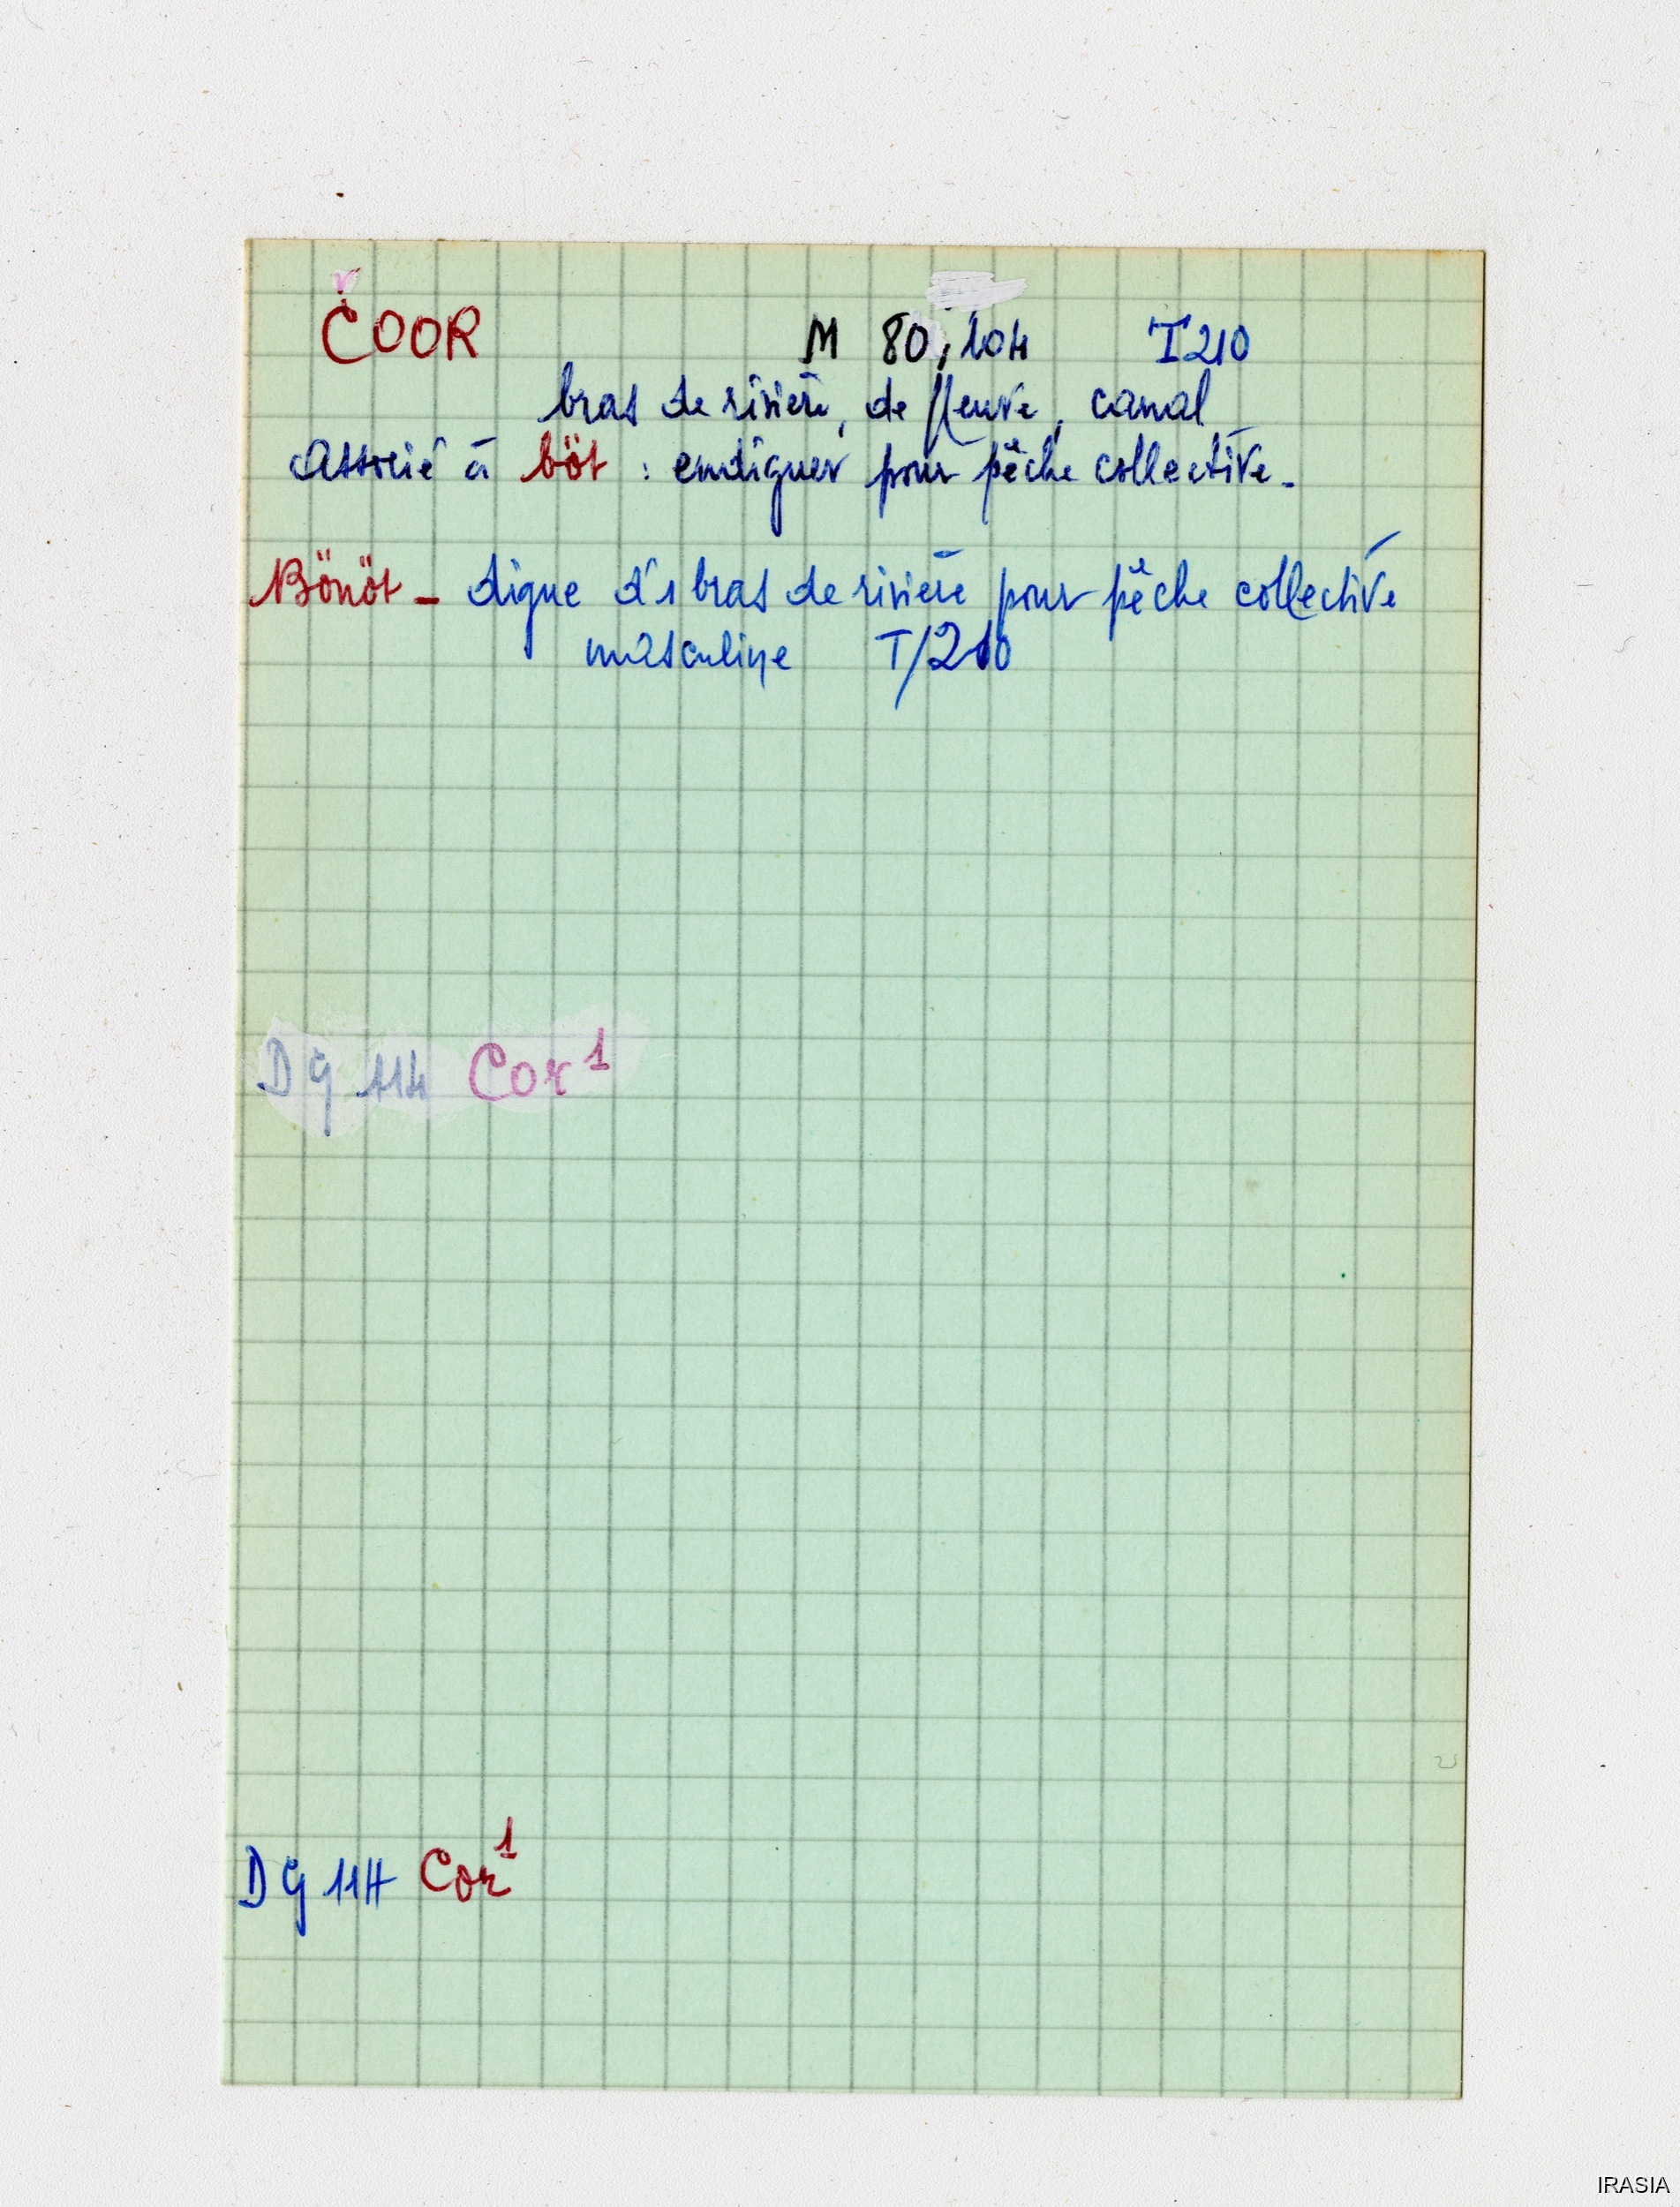 ČOOR M 80, 104 T210
bras de rivière, de fleuve, canal
Associé à böt : endiguer pour pêche collective.
Bönöt - digue d'1 bras de rivière pour pêche collective
masculine T/210
DG 114 Cor¹
DG 114 Cor¹
IRASIA